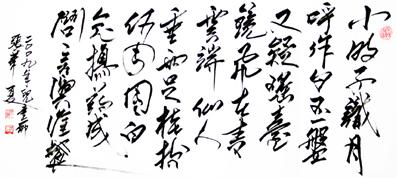 小时不識月
呼作白玉盤
又疑瑤臺
鏡飛在青
雲端仙人
垂兩足桂樹
何團團白
兔搗藥成
問言與誰餐
二〇〇九年